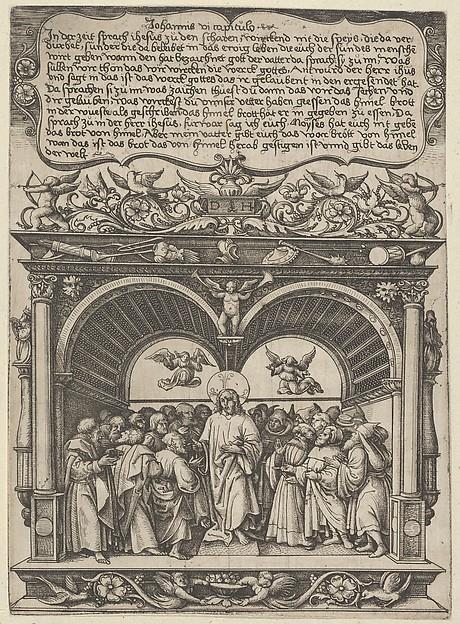 Johannis vi capitulo
In der zeit sprach ihesus zu den scharen wirckend nit die speys die da ver
dürbet, sunder die da beleibet in das ewig leben die euch der sun des mensche
wirt geben wann den hat bezaichnet gott der vatter da sprachē sy zu im was
süllen wir thon das wir wircken die werck gottes Antwurd der herr ihūs
und sagt in das ist das werck gottes das ir gelaubent in den er gesendet hat
Da sprachen si zu im was zaichen thuest du dann das wir das sehen und
dir gelauben was wirckest du unnser vetter haben gessen das himel brott
in der wueste als geschriben das himel brott hat er in gegeben zu essen Da
sprach zu in herr ihesus fürwar sag ich euch Moyses hat euch nit gebē
das brot von himel Aber mein vatter gibt euch das war brott von himel
wan das ist das brot das von himel herab gestigen ist unnd gibt das leben
der welt
D H